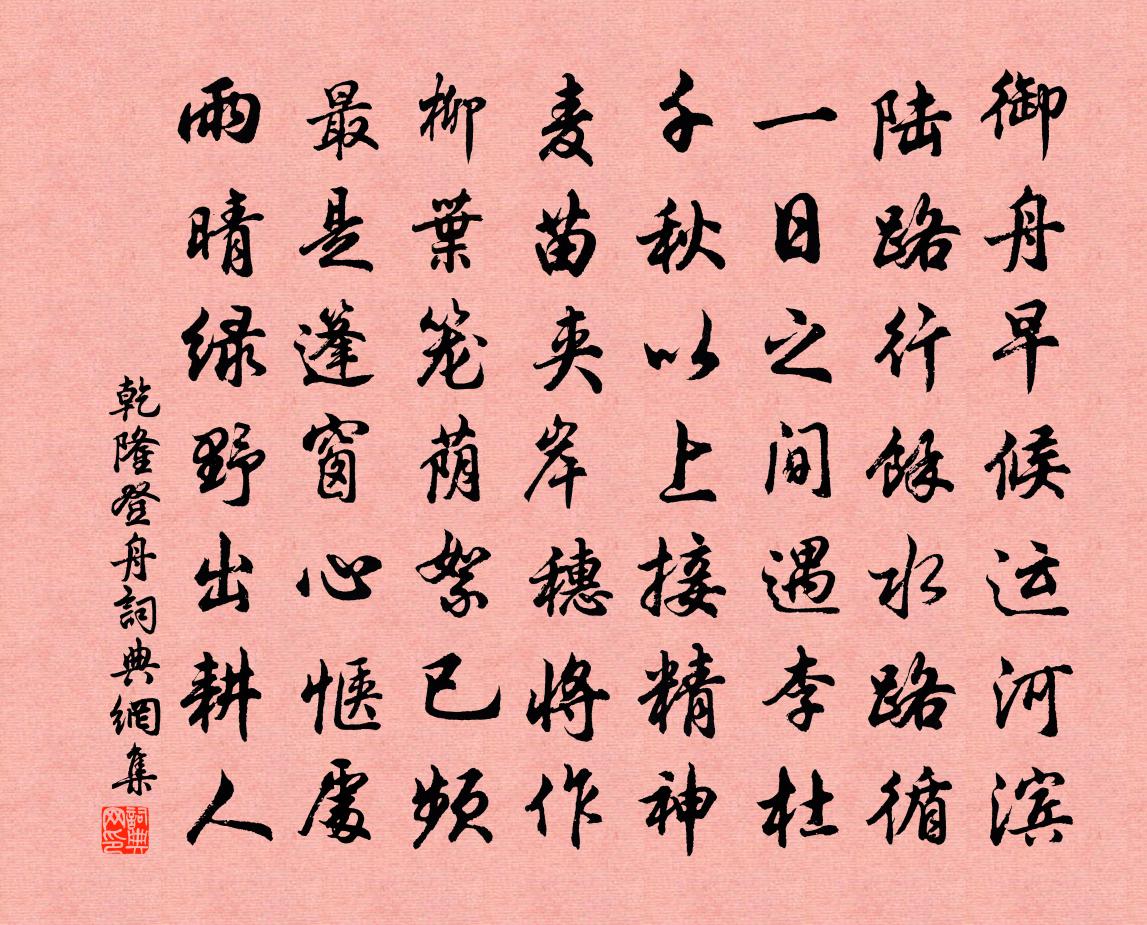 御舟早候运河滨
陆路行馀水路循
一日之间遇李杜
千秋以上接精神
麦苗夹岸穗将作
柳葉笼荫絮已频
最是篷窗心惬處
雨晴绿野出耕人
乾隆登舟詞典網集
詞典网印